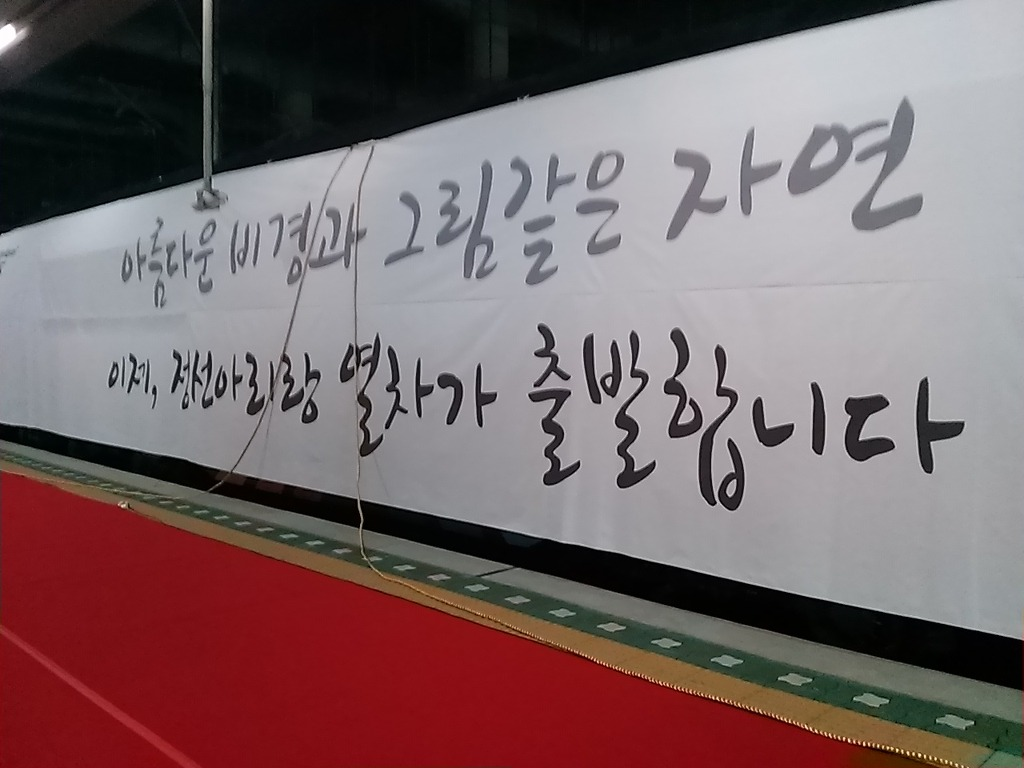 아름다운 비경과 그림같은 자연
이제, 정선아리랑 열차가 출발합니다